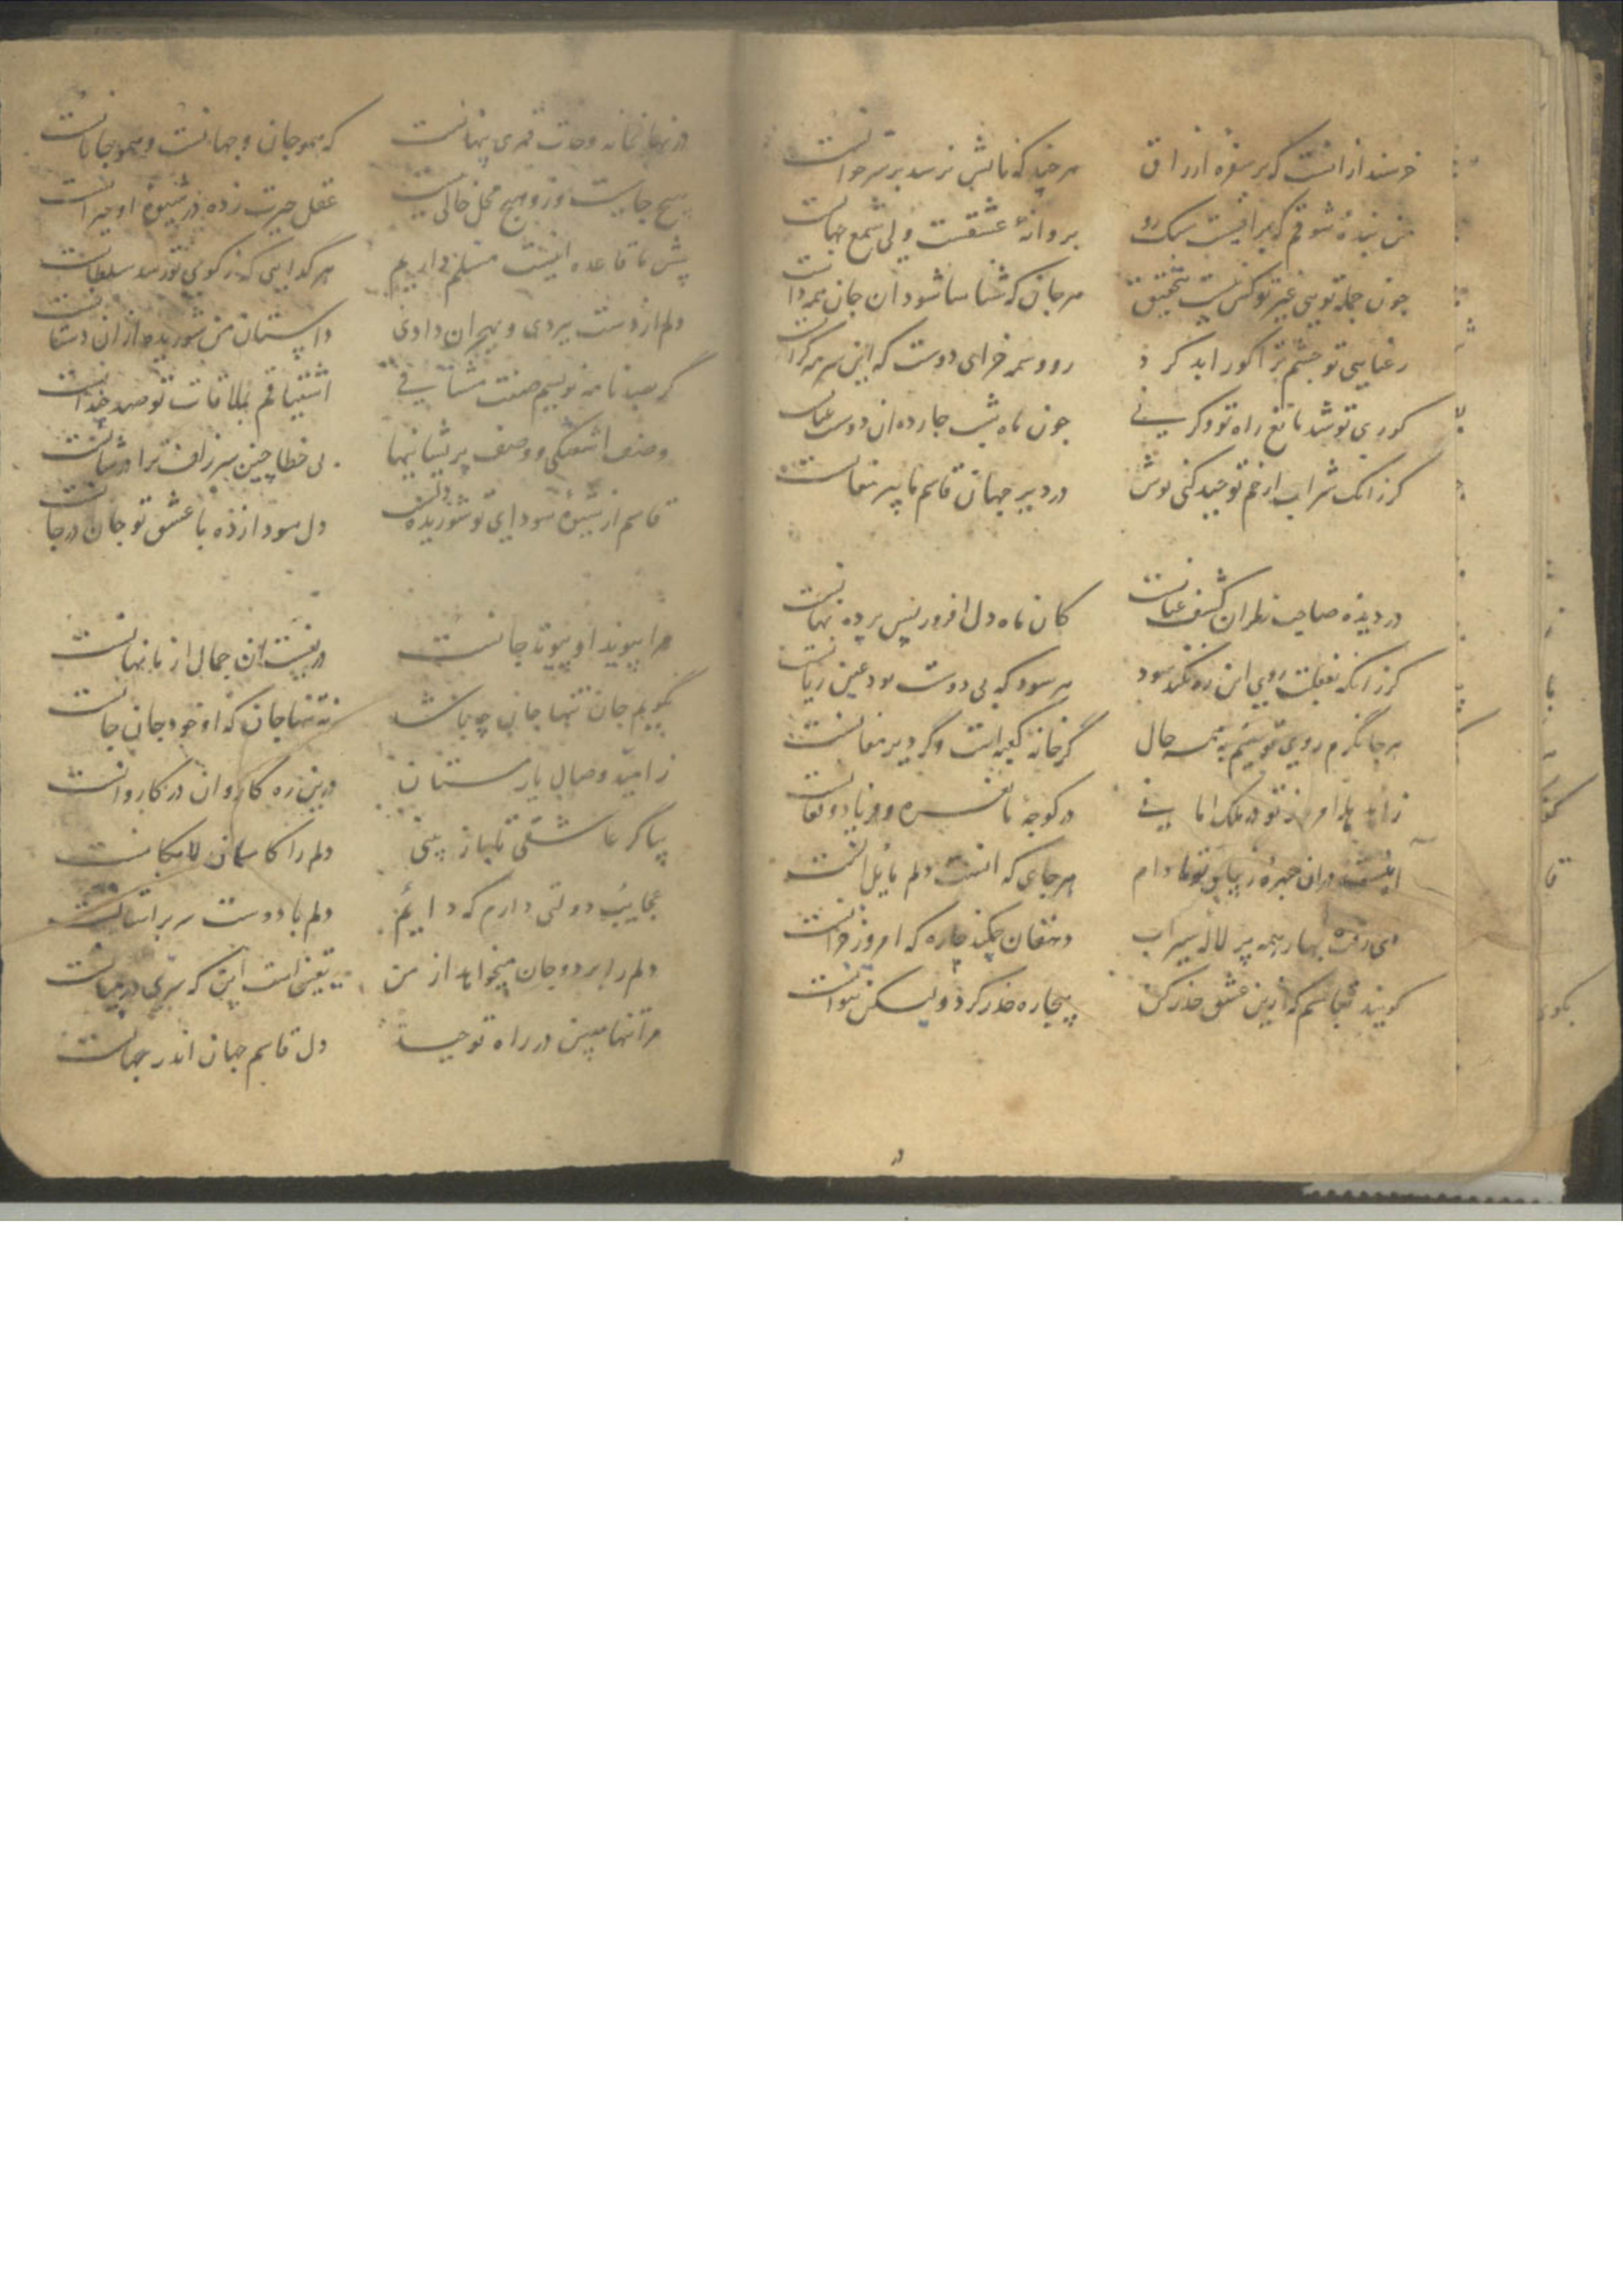 خرسند ازانست که بر سفره ارزاق هرچند که نانش نرسد بر سر خوانست
من بنده شوقم که براقیست سبک رو پروانهٔ عشقست ولی شمع جهانست
چون جمله تویی غیر تو کس نیست بتحقیق هر جان که شناسا شود ان جان همه دانست
رعنایی تو چشم ترا کور ابد کرد رو سرمه خر ای دوست که این سرمه کرانست
کوری تو شد مانع راه تو وکر نی چون ماه شب چارده ان دوست عیانست
کرزانک شراب از خم توحید کنی نوش در دیر جهان قاسم ما پیر مغانست
در دیده صاحب نظران کشف عیانست کان ماه دل افروز پس پرده نهانست
کرزانکه بغفلت روی این ره نکند سود هر سود که بی دوست بود عین زیانست
هر جا نکرم روی تو بینم بهمه حال گر خانه کعبه است وگر دیر مغانست
در کوچهٔ ما نعره و فریاد و فغانست
هر جای که انست دلم مایل انست
دی رفت بهار همه پر لاله سیراب دهقان چکند چاره که امروز خزانست
کویند بقاسم که ازین عشق حذر کن بیچاره حذر کرد ولیکن نتوانست
در نهانخانه وحدت قمری پنهانست که همو جان و جهانست و همو جانانست
هیچ جا نیست وزو هیچ محل خالی نیست عقل حیرت زده در شیوهٔ او حیرانست
پیش ما قاعده اینست مسلم داریم هر گدایی که ز کوی تو رسد سلطانست
دلم از دست ببردی و بهجران دادی داستان من شوریده ازان دستانست
گر بصد نامه نویسم صفت مشتاقی اشتیاقم بملاقات تو صد چندانست
وصف اشفتکی و وصف پریشانیها بی خطا چین سر زلف ترا در شانست
قاسم از شیوه سودایی تو شوریده دل سودازده با عشق تو جان در جانست
مرا پیوند او پیوند جانست در بغست ان جمال از ما نهانست
نگویم جان تنها جان چه باشد نه تنها جان که او خود جان جانست
ز امید وصال یار مستان درین ره کاروان در کاروانست
بیا گر عاشقی تا باز بینی دلم را کاسمان لامکانست
عجایب دولتی دارم که دایم دلم با دوست سر بر استانست
دلم را برد و جان میخواهد از من یقین است این که سری در میانست
مرا تنها مبین در راه توحید دل قاسم جهان اندر جهانست